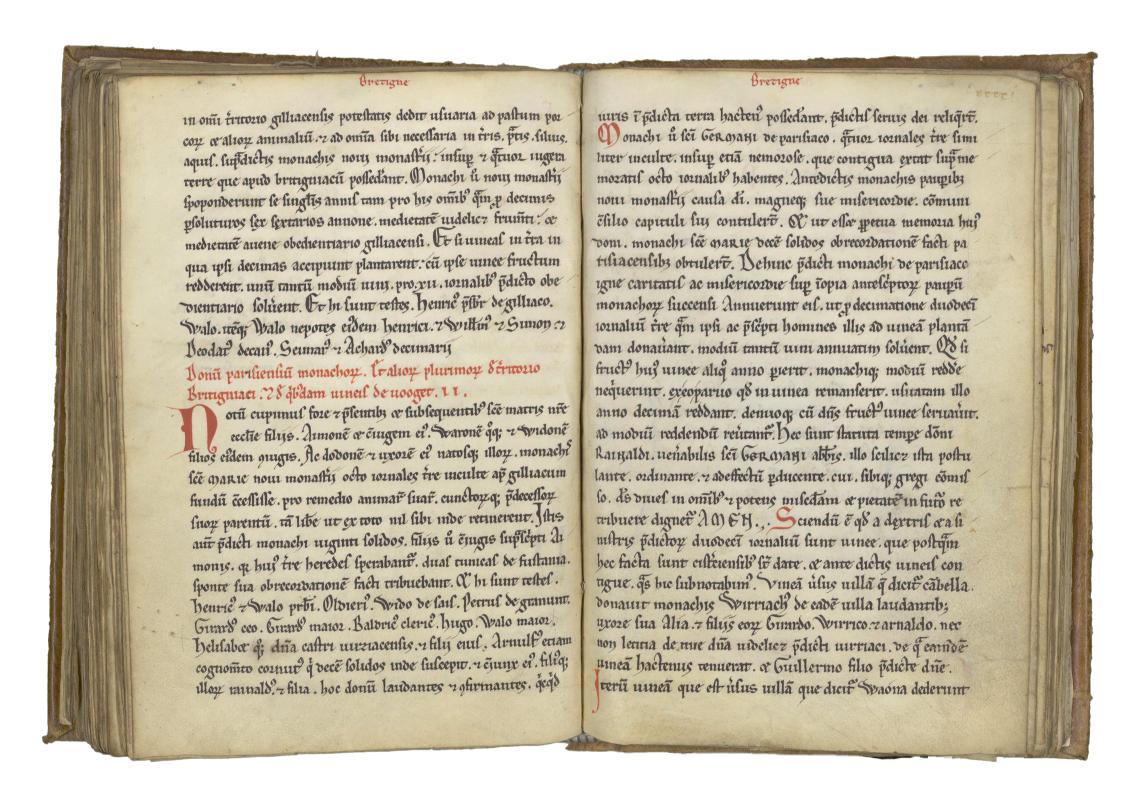 Bretigne
in om̄i t̄ritorio gilliacensis potestatis dedit usuaria ad pastum por
corꝝ ⁊ alioꝝ animaliū. ⁊ ad om̄ia sibi necessaria in t̄ris. p̄tis. siluis.
aquis. sup̄dictis monachis noui monast̄ii. insup̄ ⁊ q̄tuor iugera
terre que apud britigniacū possed̄ant. Monachi ū noui monast̄ii
spoponderunt se singl̄is annis tam pro his om̄ib; q̄m p̱ decimis
p̱soluturos sex sextarios annone. medietatē uidelic& frum̄ti. ⁊
medietatē auene obedientiario gilliacensi. Et si uineas in t̄ra in
qua ipsi decimas accipiunt plantarent. cū ipse uinee fructum
redderent. unū tantū modiū uini. pro .xii. iornalib; p̄dicto obe
dientiario solūent. Et hi sunt testes. Henric᾽ p̄sbr̄ de gilliaco.
Walo. iteq; Walo nepotes eidem henrici. ⁊ Willm̄᾽ ⁊ Simon ⁊
Deodat᾽ decan᾽. Seimar᾽ ⁊ Achard᾽ decimarii
Donū parisiensiū monachoꝝ. ⁊ alioꝝ plurimoꝝ d̄ t̄ritorio
Britigniaci. ⁊ d̄ q̄bdam uineis de uooget. II.
Notū cupimus fore ⁊ p̄sentib; ⁊ subsequentib; sc̄e matris nr̄e
eccl̄ie filiis. Aimonē ⁊ c̄iugem ei᾽. Waronē q̄q; ⁊ Widonē
filios eidem c̄iugis. Ac dodonē ⁊ uxorē ei᾽ natosq; illoꝝ. monachis
sc̄e MARIE noui monast̄ii octo iornales t̄re inculte ap̄ gilliacum
fundū c̄cessisse. pro remedio animaꝝ suaꝝ. cunctoꝝq; p̄decessoꝝ
suoꝝ parentū. tā lib̄e ut ex toto nil sibi inde retinerent. Istis
aūt p̄dicti monachi uiginti solidos. filiis ū c̄iugis sup̄sc̄pti Ai
monis. qi hui᾽ t̄re heredes sperabant᾽. duas tunicas de fustania.
sponte sua ob recordationē facti tribuebant. Qi hi sunt testes.
Henric᾽ ⁊ Walo prb̄i. Oldieri᾽. Wido de sais. Petrus de granunt.
Girard᾽ ceo. Girard᾽ maior. Baldric᾽ cleric᾽. Hugo. Walo maior.
Helisabæ q̄; dn̄a castri uirziacensis. ⁊ filii eius. Arnulf᾽ etiam
cognom̄to cornut᾽ q̄ decē solidos inde suscepit. ⁊ c̄iunx ei᾽. filiq;
illoꝝ rainald᾽. ⁊ filia. hoc donū laudantes ⁊ ꝯfirmantes. q̄cq̄d
Bretigne
iuris ī p̄dicta terra hacten᾽ possed̄ant. p̄dictis seruis dei reliq̄rt̄.
Monachi ū sc̄i GERMANI de parisiaco. q̄tuor iornales t̄re simi
liter inculte. insup̄ etiā nemorose. que contigua extat sup̄me
moratis octo iornalib; habentes. Antedictis monachis paup̱ib;
noui monast̄ii causa dī. magneq; sue misericordie. cōmuni
c̄silio capituli sui contulert̄. Qi ut esse p̱petua memoria hui᾽
doni. monachi sc̄e MARIE decē solidos ob recordationē facti pa
risiacensib; obtulert̄. Dehinc p̄dicti monachi de parisiaco
igne caritatis ac misericordie sup̄ īopia antesc̄ptoꝝ paup̱ū
monachoꝝ succensi. Annuerunt eis. ut p̱ decimatione duodeci
iornaliū t̄re q̄m ipsi ac p̄sc̄pti homines illis ad uineā plantā
dam donauant. modiū tantū uini annuatim solūent. Qd̄ si
fruct᾽ hui᾽ uinee aliq̄ anno p̱ierit. monachiq; modiū redde
neq̄uerint. ex eo paruo qd̄ in uinea remanserit. usitatam illo
anno decimā reddant. denuoq; cū dn̄s fruct᾽ uinee seruauīt.
ad modiū reddendū reūtant᾽. Hec sunt statuta temp̱e dōni
RAINALDI. uen̄abilis sc̄i GERMANI abb̄is. illo scilic& ista postu
lante. ordinante. ⁊ ad effectū p̱ducente. cui. sibiq; gregi cōmis
so. d̄s diues in om̄ib; ⁊ potens mis̄cdam ⁊ pietatē in futo᾽ re
tribuere dignet᾽ AMEN. Sciendū ē qd̄ a dextris ⁊ a si
nistris p̄dictoꝝ duodeci iornaliū sunt uinee. que postq̄m
hec facta sunt cist̄ciensib; st̄ date. ⁊ ante dictis uineis con
tigue. q̄s hic subnotabim᾽. Vineā ūsus uillā q̄ dicit᾽ cābella.
donauit monachis Wirriach᾽ de eadē uilla laudantib;
uxore sua Alia ⁊ filiis eoꝝ Girardo. Wirrico. ⁊ arnaldo. nec
non leticia de tīne dn̄a uidelic& p̄dicti uirriaci. de q̄ eandē
uineā hactenus tenuerat. ⁊ Guillermo filio p̄dicte dn̄e.
Iterū uineā que est ūsus uillā que dicit᾽ Waona dederunt